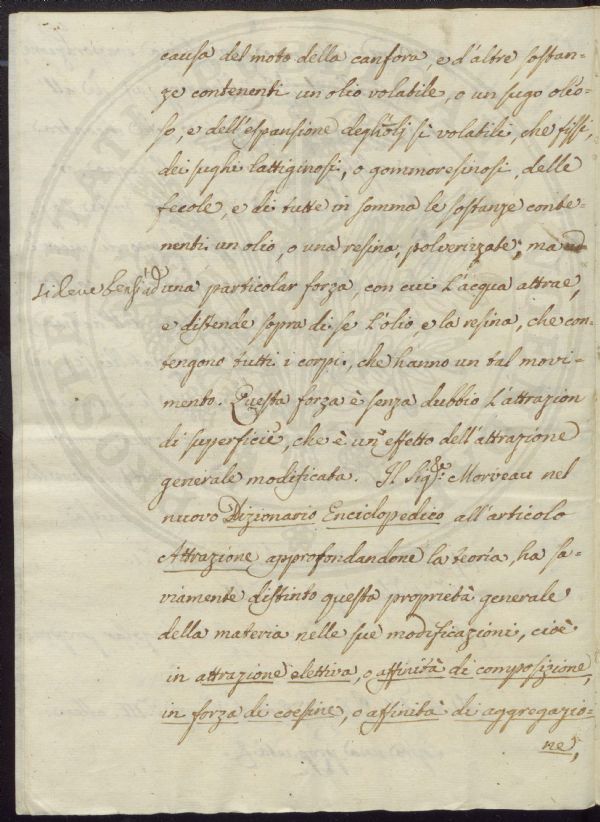 causa del moto della canfora, e d'altre sostan-
ze contenenti un olio volabile, o un sugo oleo-
so, e dell'espansione degli olj sì volabili, che fissi,
dei sughi lattiginosi, o gommoresinosi, delle
fecole, e di tutte in somma le sostanze conte-
nenti un olio, o una resina, polverizzate; ma
si deve bensì ad una particolar forza, con cui l'acqua attrae,
e distende sopra di se l'olio, e la resina, che con-
tengono tutti i corpi, che hanno un tal movi-
mento. Questa forza è senza dubbio l'attrazion
di superficie, che è un effetto dell'attrazione
generale modificata. Il Sig.re Morveau nel
nuovo Dizionario Enciclopedico all'articolo
Attrazione approfondandone la teoria, ha sa-
viamente distinto questa proprietà generale
della materia nelle sue modificazioni, cioè
in attrazione elettiva, o affinità di composizione,
in forza di coesine, o affinità di aggregazio-
ne,